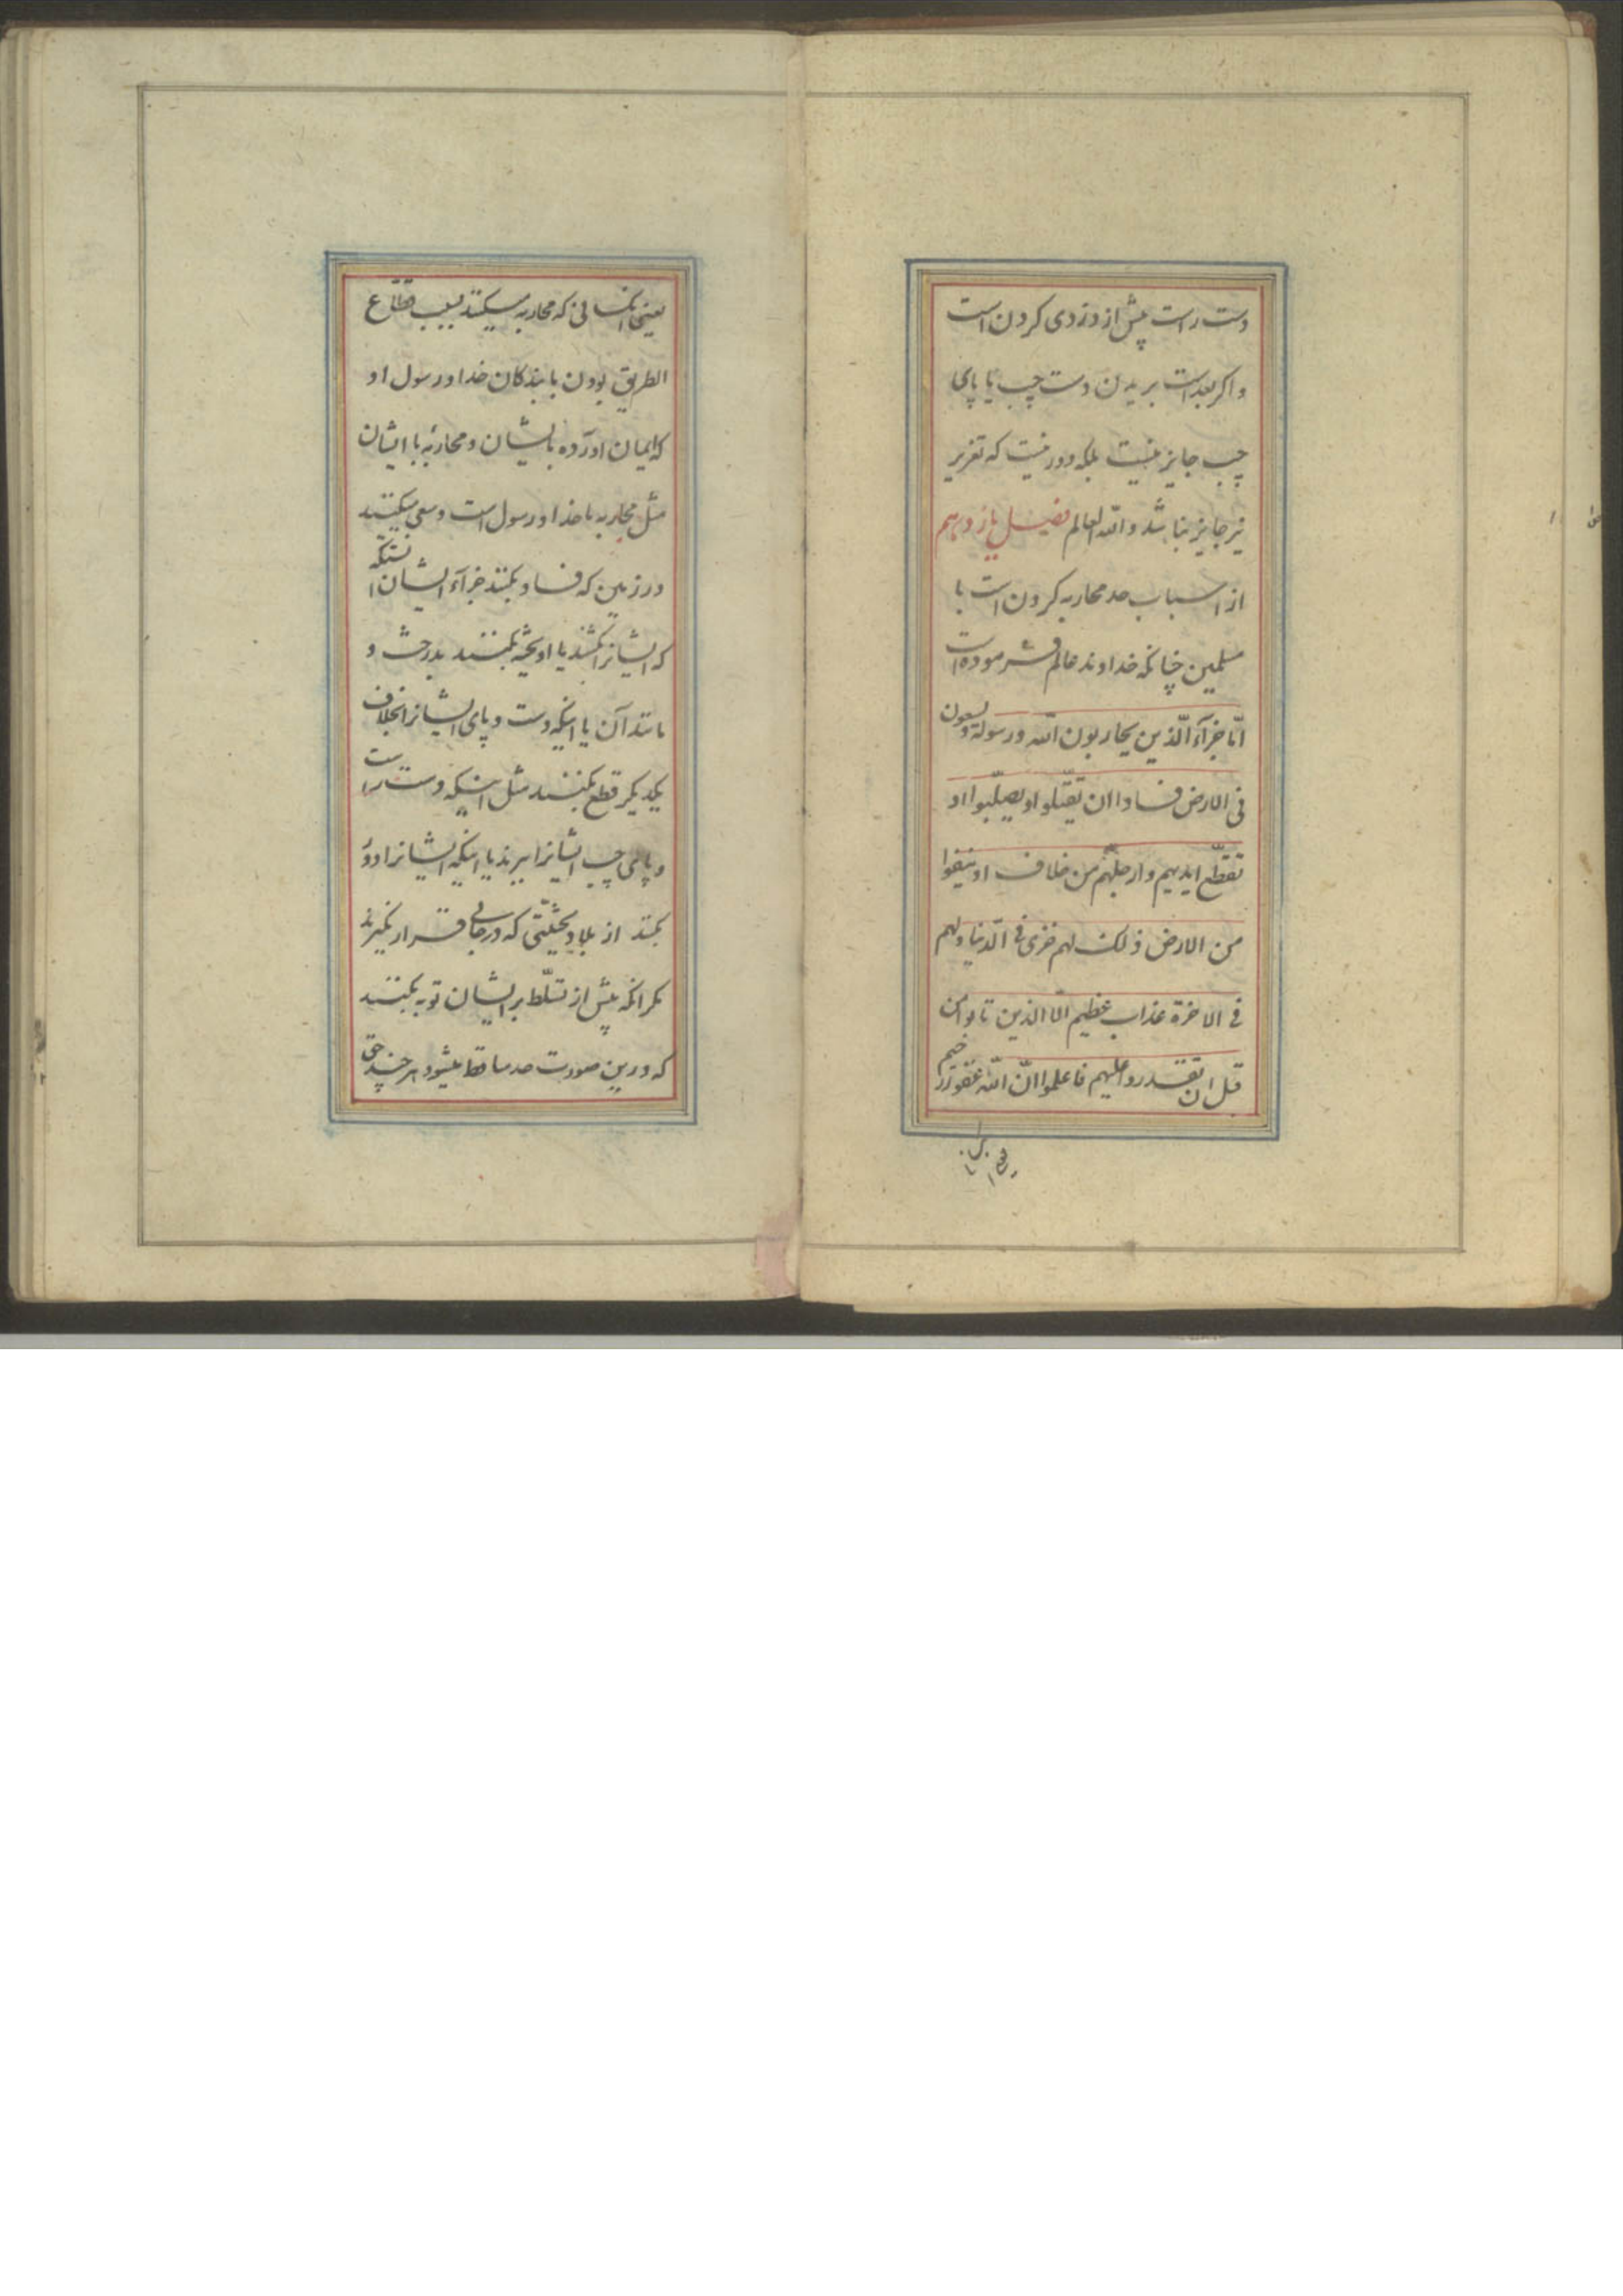 دست راست پیش از دزدی کردن است
و اکر بعد است بریدن دست چپ یا پای
چپ جایز نیست بلکه دور نیست که تعزیر
نیز جایز نباشد و الله العالم فصل یازدهم
از اسباب حد محاربه کردن است با
مسلمین چنانکه خداوند عالم فرموده است
انّما جزآء الّذین یحاربون الله و رسوله و یسعون
فی الارض فسادا ان یقتّلوا او یصلّبوا او
تقطّع ایدیهم و ارجلهم من خلاف او ینفوا
من الارض ذلک لهم خزی فی الدّنیا و لهم
فی الاخرة عذاب عظیم الّا الذین تابوا من
قبل ان تقدروا علیهم فاعلموا انّ الله غفور رحیم
یعنی آنکسانی که محاربه میکنند بسبب قطّاع
الطریق بودن با بندکان خدا و رسول او
که ایمان آورده بایشان و محاربه با ایشان
مثل محاربه با خدا و رسول است و سعی میکنند
در زمین که فساد بکنند جزآء ایشان اینستکه
که ایشانرا بکشند یا آویخته بکنند بدرخت و
مانند آن یا اینکه دست و پای ایشانرا بخلاف
یکدیکر قطع بکنند مثل اینکه دست راست
و پای چپ ایشانرا ببرند یا اینکه ایشانرا دور
بکنند از بلاد بحیثیّتی که در جائی قرار نکیرند
مکر آنکه پیش از تسلّط بر ایشان توبه بکنند
که درین صورت حد ساقط میشود هر چند حق